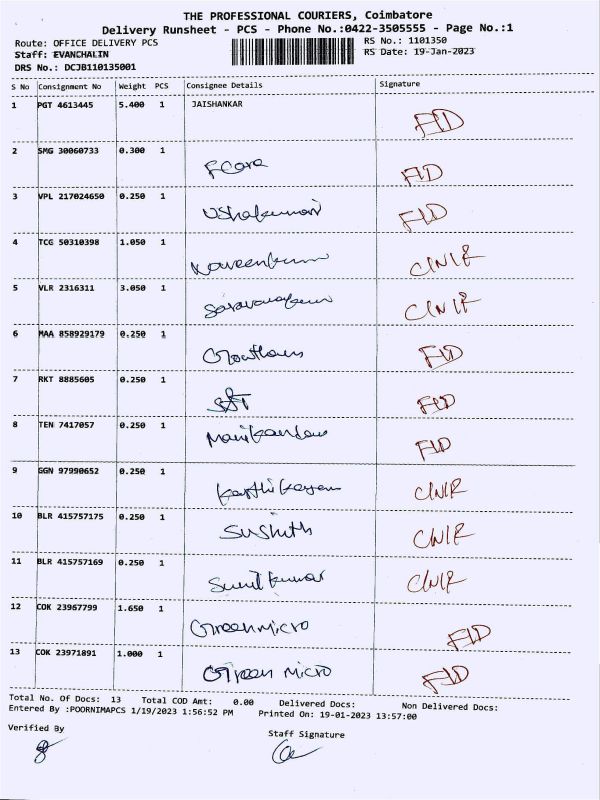 THE PROFESSIONAL COURIERS, Coimbatore
Delivery Runsheet - PCS - Phone No.:0422-3505555 - Page No.:1
Route: OFFICE DELIVERY PCS RS No.: 1101350
Staff: EVANCHALIN RS Date: 19-Jan-2023
DRS No.: DCJB110135001
S No Consignment No Weight PCS Consignee Details Signature
1 PGT 4613445 5.400 1 JAISHANKAR FID
2 SMG 30060733 0.300 1 FCara FID
3 VPL 217024650 0.250 1 Ushakumari FID
4 TCG 50310398 1.050 1 Naveenkumar C/N/R
5 VLR 2316311 3.050 1 Saravanakumar C/N/R
6 MAA 858929179 0.250 1 Gowtham FID
7 RKT 8885605 0.250 1 FID
8 TEN 7417057 0.250 1 Manikandan FID
9 GGN 97990652 0.250 1 Karthikeyan C/N/R
10 BLR 415757175 0.250 1 Sushith C/N/R
11 BLR 415757169 0.250 1 Sunil kumar C/N/R
12 COK 23967799 1.650 1 Green micro FID
13 COK 23971891 1.000 1 Green micro FID
Total No. Of Docs: 13 Total COD Amt: 0.00 Delivered Docs: Non Delivered Docs:
Entered By :POORNIMAPCS 1/19/2023 1:56:52 PM Printed On: 19-01-2023 13:57:00
Verified By Staff Signature